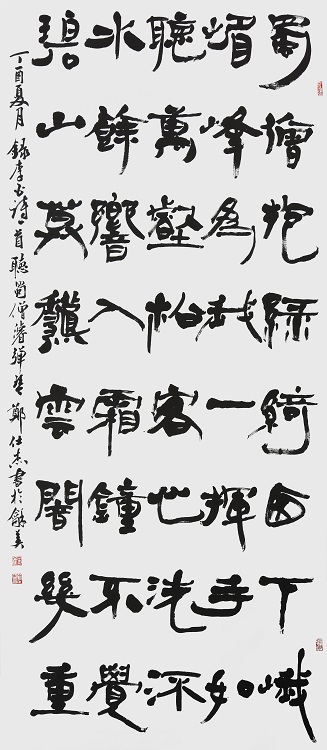 蜀僧抱綠綺西下峨
嵋峰為我一揮手如
聽萬壑松客心洗流
水餘響入霜鐘不覺
碧山暮秋雲闇幾重
丁酉夏月錄李白詩一首聽蜀僧濬彈琴鄭仕杰書於